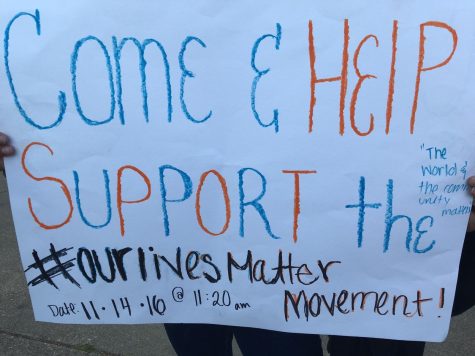 COME & HElP
SUPPORT the
"The
World &
the comm
unity
matter
#OURlivesMatter
Date: 11·14·16 @ 11:20 am MOVEMENT!